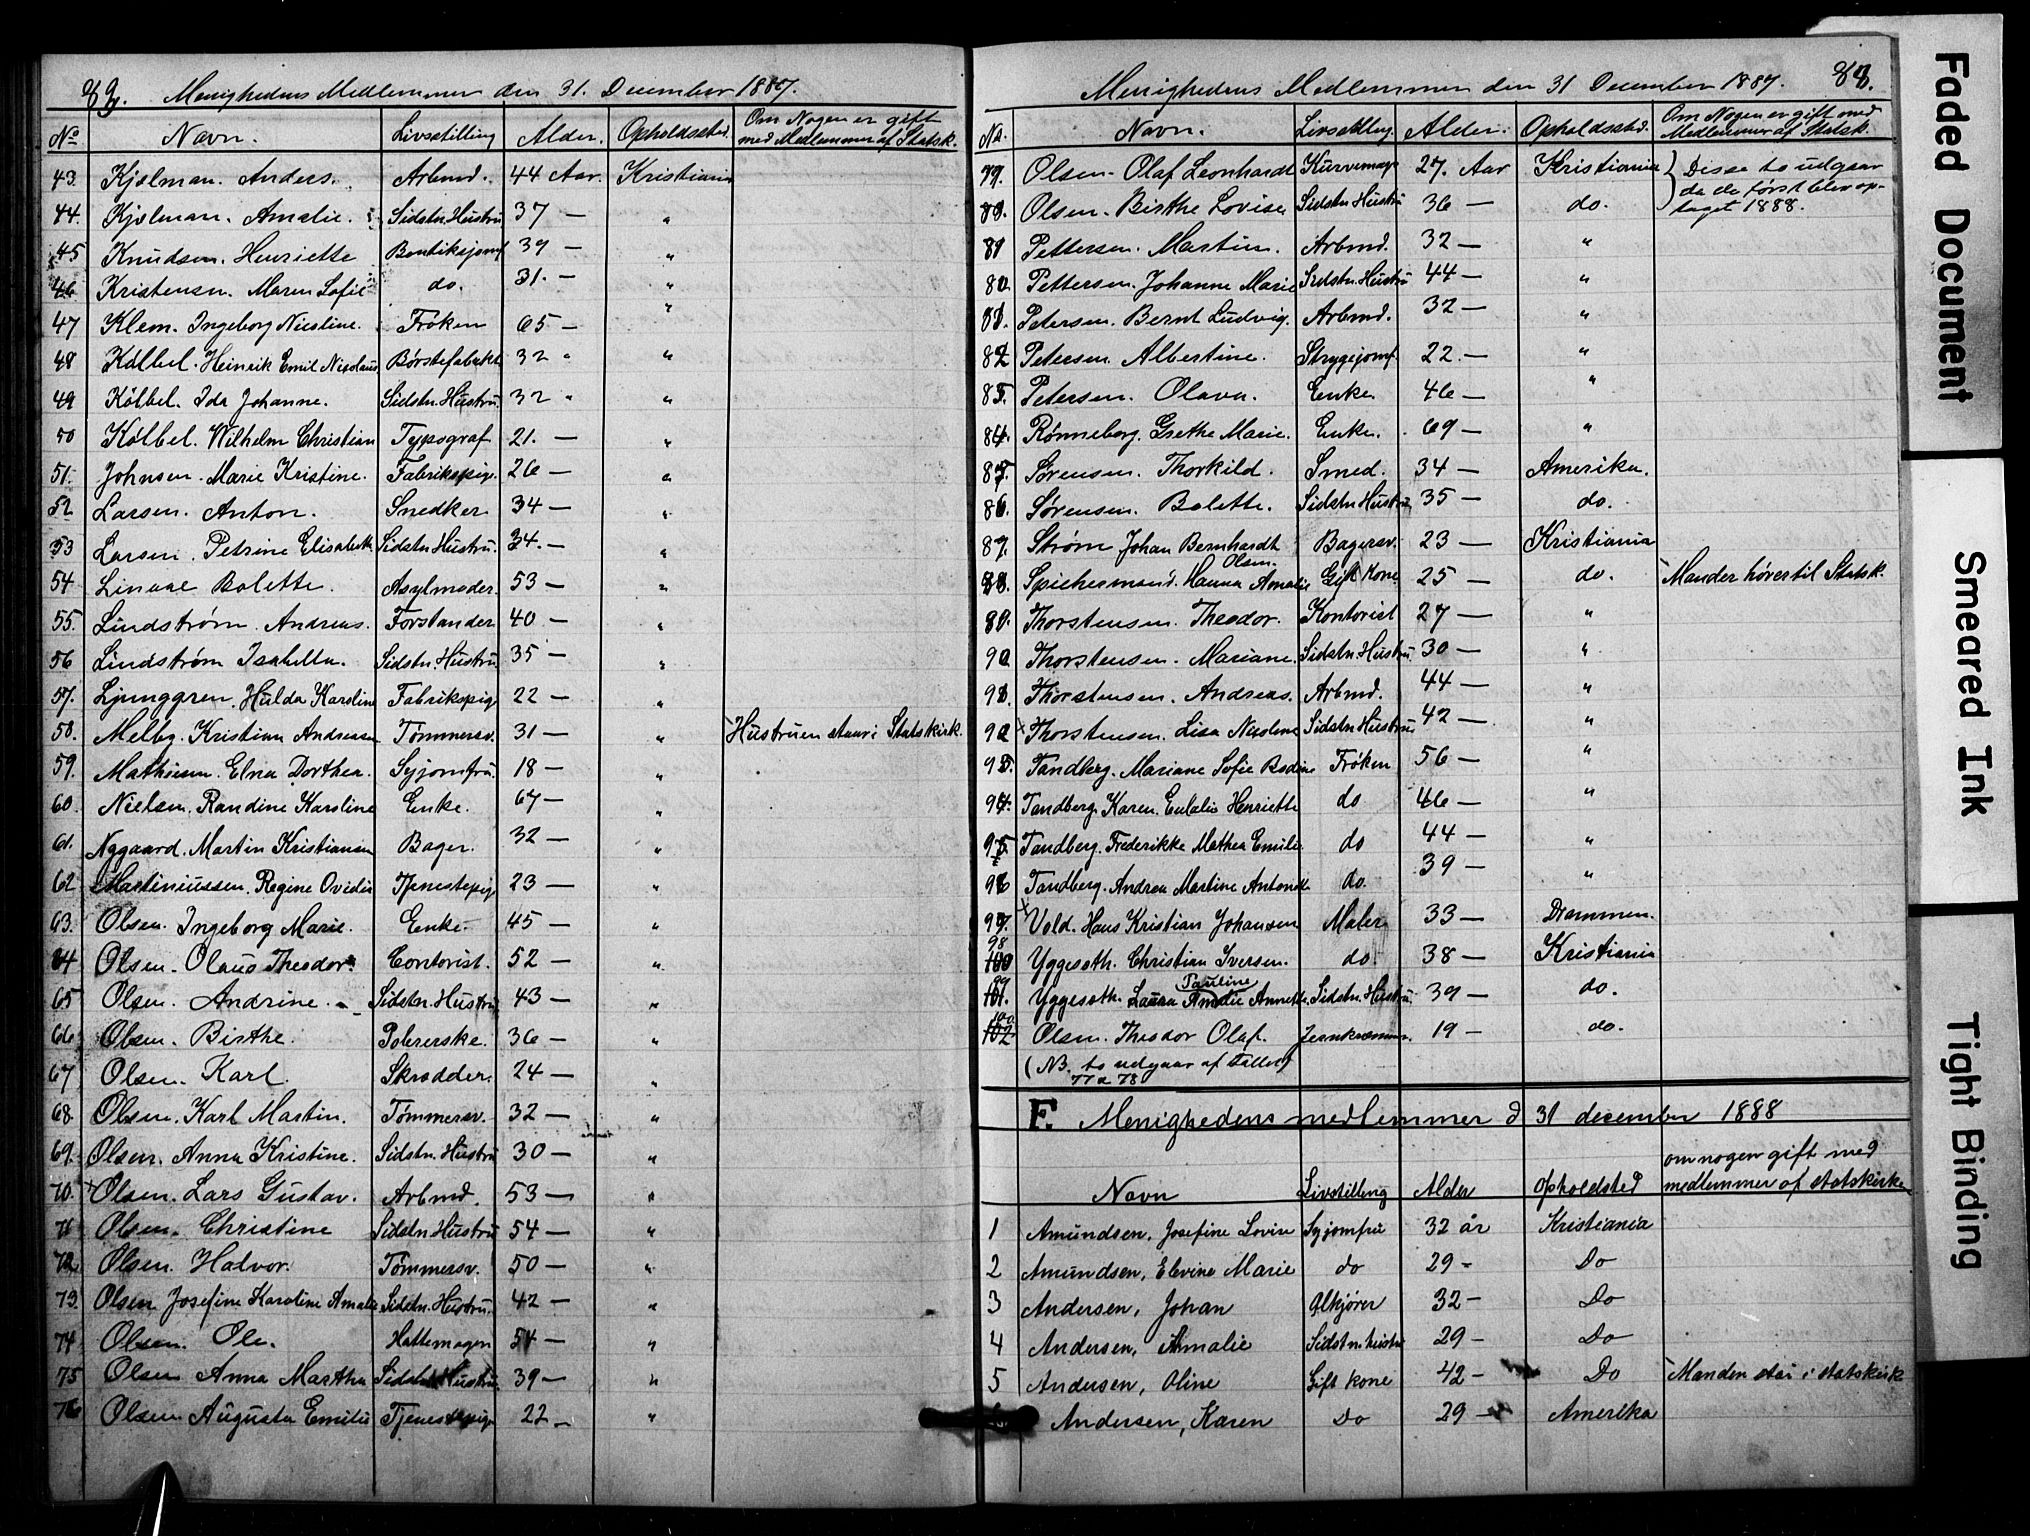 82. Menighedens Medlemmer den 31. December 1887.
No Navn. Livsstilling Alder. Opholdssted. Om Nogen er gift med Medlemmer af Statsk.
43. Kjølman. Anders. Arbmd. 44 Aar. Kristiania
44. Kjølman. Amalie. Sidstn. Hustru 37 — "
45 Knudsen. Henriette Boutiksjomf 39 — "
46 Kristensen. Maren Sofie do. 31. — "
47 Klem. Ingeborg Nicoline. Frøken 65 — "
48 Kölbel. Heinrik Emil Nicolaus Børstefabrkt 32 " "
49 Kölbel. Ida Johanne. Sidstn. Hustru. 32 " "
50 Kölbel. Wilhelm Christian Typograf 21. — "
51. Johnsen. Marie Kristine. Fabrikspig. 26 — "
52 Larsen. Anton. Snedker 34 — "
53 Larsen. Petrine Elisabeth Sidstn. Hustru. 34. — "
54 Linaae Bolette. Asylmoder. 53 — "
55. Lindstrøm. Andreas. Forstander 40 — "
56 Lindstrøm Isabella. Sidstn. Hustru. 35 — "
57. Ljunggren. Hulda Karoline Fabrikspig. 22 — "
58. Melby. Kristian Andreassen Tømmersv. 31 — " Hustruen staar i Statskirk.
59. Mathiesen. Elna Dorthea. Syjomfru. 18 — "
60. Nielsen. Randine Karoline Enke. 67 — "
61. Nygaard. Martin Kristiansen Bager. 32 — "
62 Martiniussen. Regine Ovidia Tjenestepig 23 — "
63. Olsen. Ingeborg Marie. Enke. 45 — "
64 Olsen. Olaus Theodor. Contorist. 52 — "
65 Olsen. Andrine. Sidstn. Hustru 43 — "
66 Olsen. Birthe. Polererske. 36 — "
67 Olsen. Karl. Skrædder. 24 — "
68. Olsen. Karl Martin. Tømmersv. 32 — "
69. Olsen. Anna Kristine. Sidstn. Hustru 30 — "
70. Olsen. Lars Gustav. Arbmd. 53 — "
71 Olsen. Christine Sidstn. Hustru 54 — "
72. Olsen. Halvor. Tømmersv. 50 — "
73. Olsen Josefine Karoline Amalie Sidstn. Hustru. 42 — "
74 Olsen. Ole. Hattemager 54 — "
75 Olsen Anna Martha Sidstn Hustru. 39 — "
76 Olsen Augusta Emilie Tjenestepige 22 — "
Menighedens Medlemmer den 31 December 1887. 83.
No. Navn. Livsstilling. Alder. Opholdssted. Om Nogen er gift med Medlemmer af Statsk.
Olsen. Olaf Leonhardt Kurvemag. 27. Aar Kristiania Disse to udgaar
Olsen. Birthe Lovise Sidstn. Hustru 36 — do. da de først blev op-
taget 1888.
Pettersen. Martin. Arbmd. 32 — "
Pettersen. Johanne Marie Sidstn. Hustru 44 — "
Petersen. Bernt Ludvig. Arbmd. 32 — "
82 Petersen. Albertine. Strygejomf 22. — "
Petersen. Olava. Enke 46 — "
84. Rønneberg. Grethe Marie. Enke. 69 — "
85. Sørensen. Thorkild. Smed. 34 — Amerika.
86. Sørensen. Bolette. Sidstn Hustru 35 — do.
87. Strøm Johan Bernhardt Bagersv. 23 — Kristiania
Olsen.
88. Spichermand. Hanna Amalie Gift Kone. 25 — do. Mander hører til Statsk.
89. Thorstensen. Theodor. Kontorist 27 — "
90 Thorstensen. Mariane. Sidstn. Hustru. 30 — "
Thorstensen. Andreas. Arbmd. 44 — "
Thorstensen. Lisa Nicoline Sidstn Hustru 42 — "
Tandberg. Mariane Sofie Bodine Frøken 56 — "
94. Tandberg. Karen. Eulalia Henriette do 46 — "
95. Tandberg. Frederikke Mathea Emilie do 44 — "
96 Tandberg. Andrea Martine Antonette do. 39 — "
97. Vold. Hans Kristian Johansen Maler 33 — Drammen.
98
100 Yggeseth. Christian Iversen. do. 38 — Kristiania
99 Pauline
101. Yggeseth. Laura Amalie Annette. Sidstn. Hustru. 39 — do.
100
102 Olsen. Theodor Olaf. 19 — do.
(NB. to udgaar af Tallet)
77 & 78
F. Menighedens medlemmer d 31 december 1888
Navn Livstilling Alder Opholdsted om nogen gift med medlemmer af statskirke
1 Amundsen, Josefine Lovise Syjomfru 32 år Kristiania
2 Amundsen, Elevine Marie do 29 - Do
3 Andersen, Johan Ølkjører 32 - Do
4 Andersen, Amalie Sidstn. hustru 29 - Do
5 Andersen, Oline Gift kone 42 - Do Manden står i statskirk
Andersen, Karen Do 29 - Amerika
Faded Document
Smeared Ink
Tight Binding